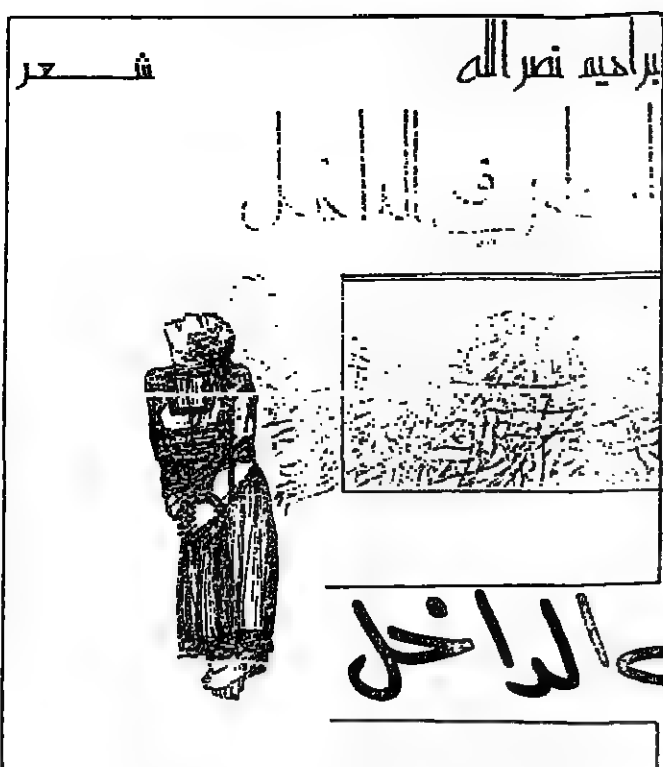 براهيم نصر الله شعر
في الداخل
الداخل